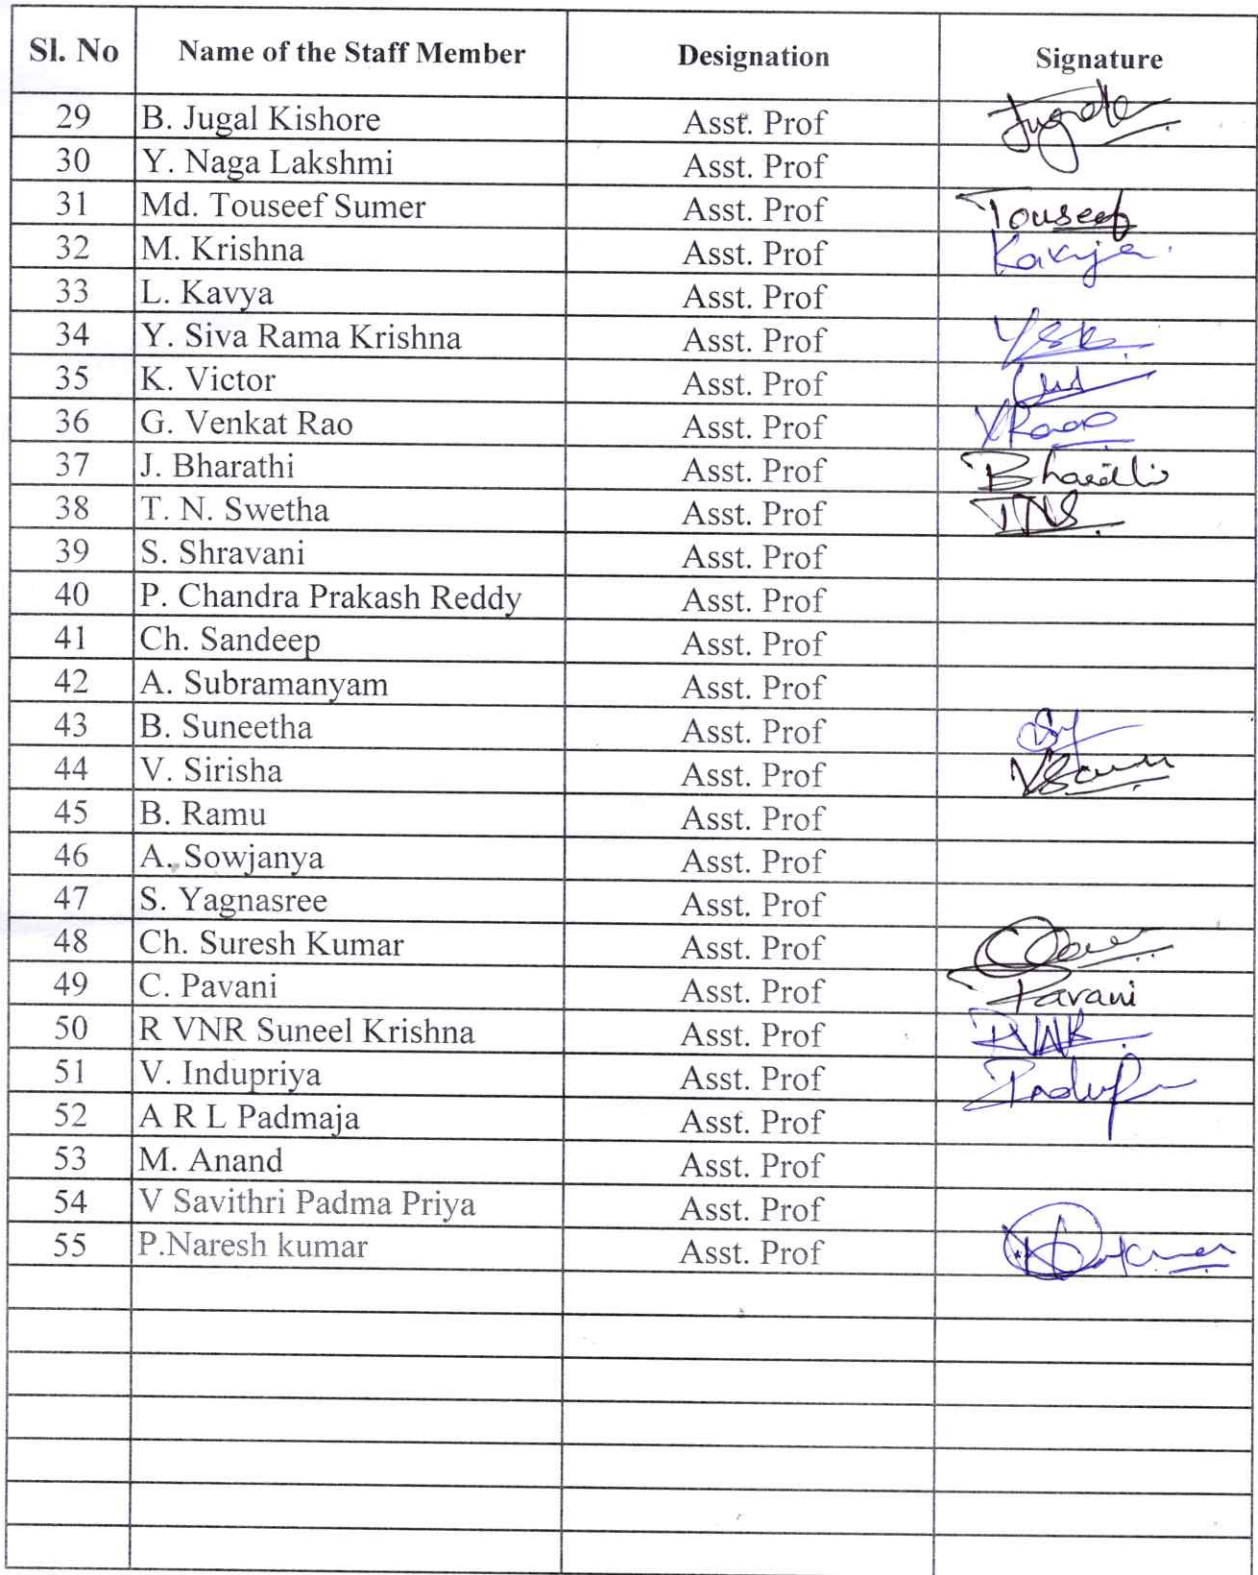 Sl. No Name of the Staff Member Designation Signature
29 B. Jugal Kishore Asst. Prof
30 Y. Naga Lakshmi Asst. Prof
31 Md. Touseef Sumer Asst. Prof Touseef
32 M. Krishna Asst. Prof Kavya
33 L. Kavya Asst. Prof
34 Y. Siva Rama Krishna Asst. Prof
35 K. Victor Asst. Prof
36 G. Venkat Rao Asst. Prof VRao
37 J. Bharathi Asst. Prof Bharathi
38 T. N. Swetha Asst. Prof TNS
39 S. Shravani Asst. Prof
40 P. Chandra Prakash Reddy Asst. Prof
41 Ch. Sandeep Asst. Prof
42 A. Subramanyam Asst. Prof
43 B. Suneetha Asst. Prof
44 V. Sirisha Asst. Prof
45 B. Ramu Asst. Prof
46 A. Sowjanya Asst. Prof
47 S. Yagnasree Asst. Prof
48 Ch. Suresh Kumar Asst. Prof
49 C. Pavani Asst. Prof Pavani
50 R VNR Suneel Krishna Asst. Prof
51 V. Indupriya Asst. Prof
52 A R L Padmaja Asst. Prof
53 M. Anand Asst. Prof
54 V Savithri Padma Priya Asst. Prof
55 P.Naresh kumar Asst. Prof